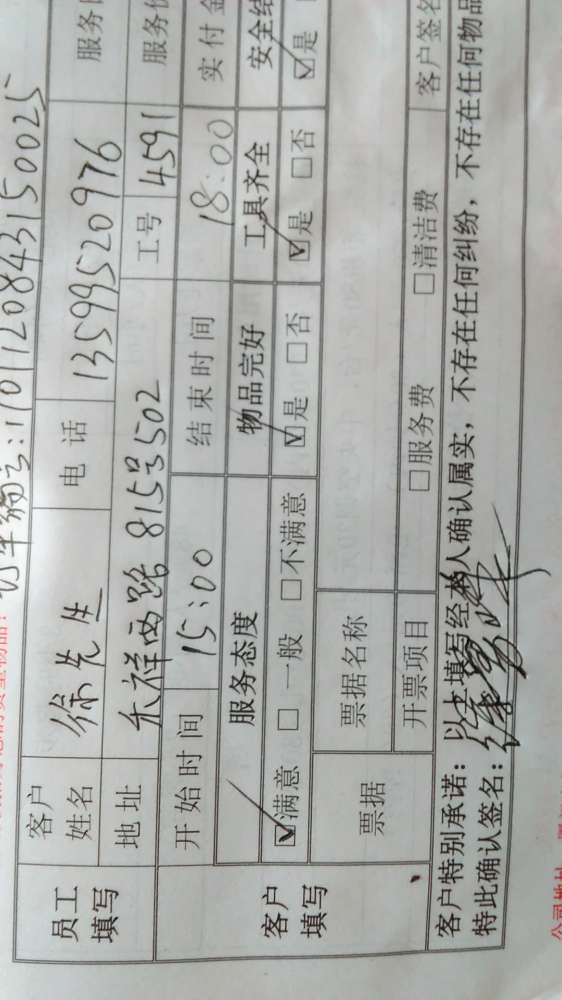 订单编号:1101120843150025
员工填写
客户姓名 徐先生 电话 13599520976 服务
地址 禾祥西路815号502 工号 4591 服务
客户填写
开始时间 15:00 结束时间 18:00 实付金
服务态度 物品完好 工具齐全 安全
☑满意 □一般 □不满意 ☑是 □否 ☑是 □否 ☑是
票据 票据名称
开票项目 □服务费 □清洁费 客户签名
客户特别承诺:以上填写经本人确认属实,不存在任何纠纷,不存在任何物品
特此确认签名:
公司地址